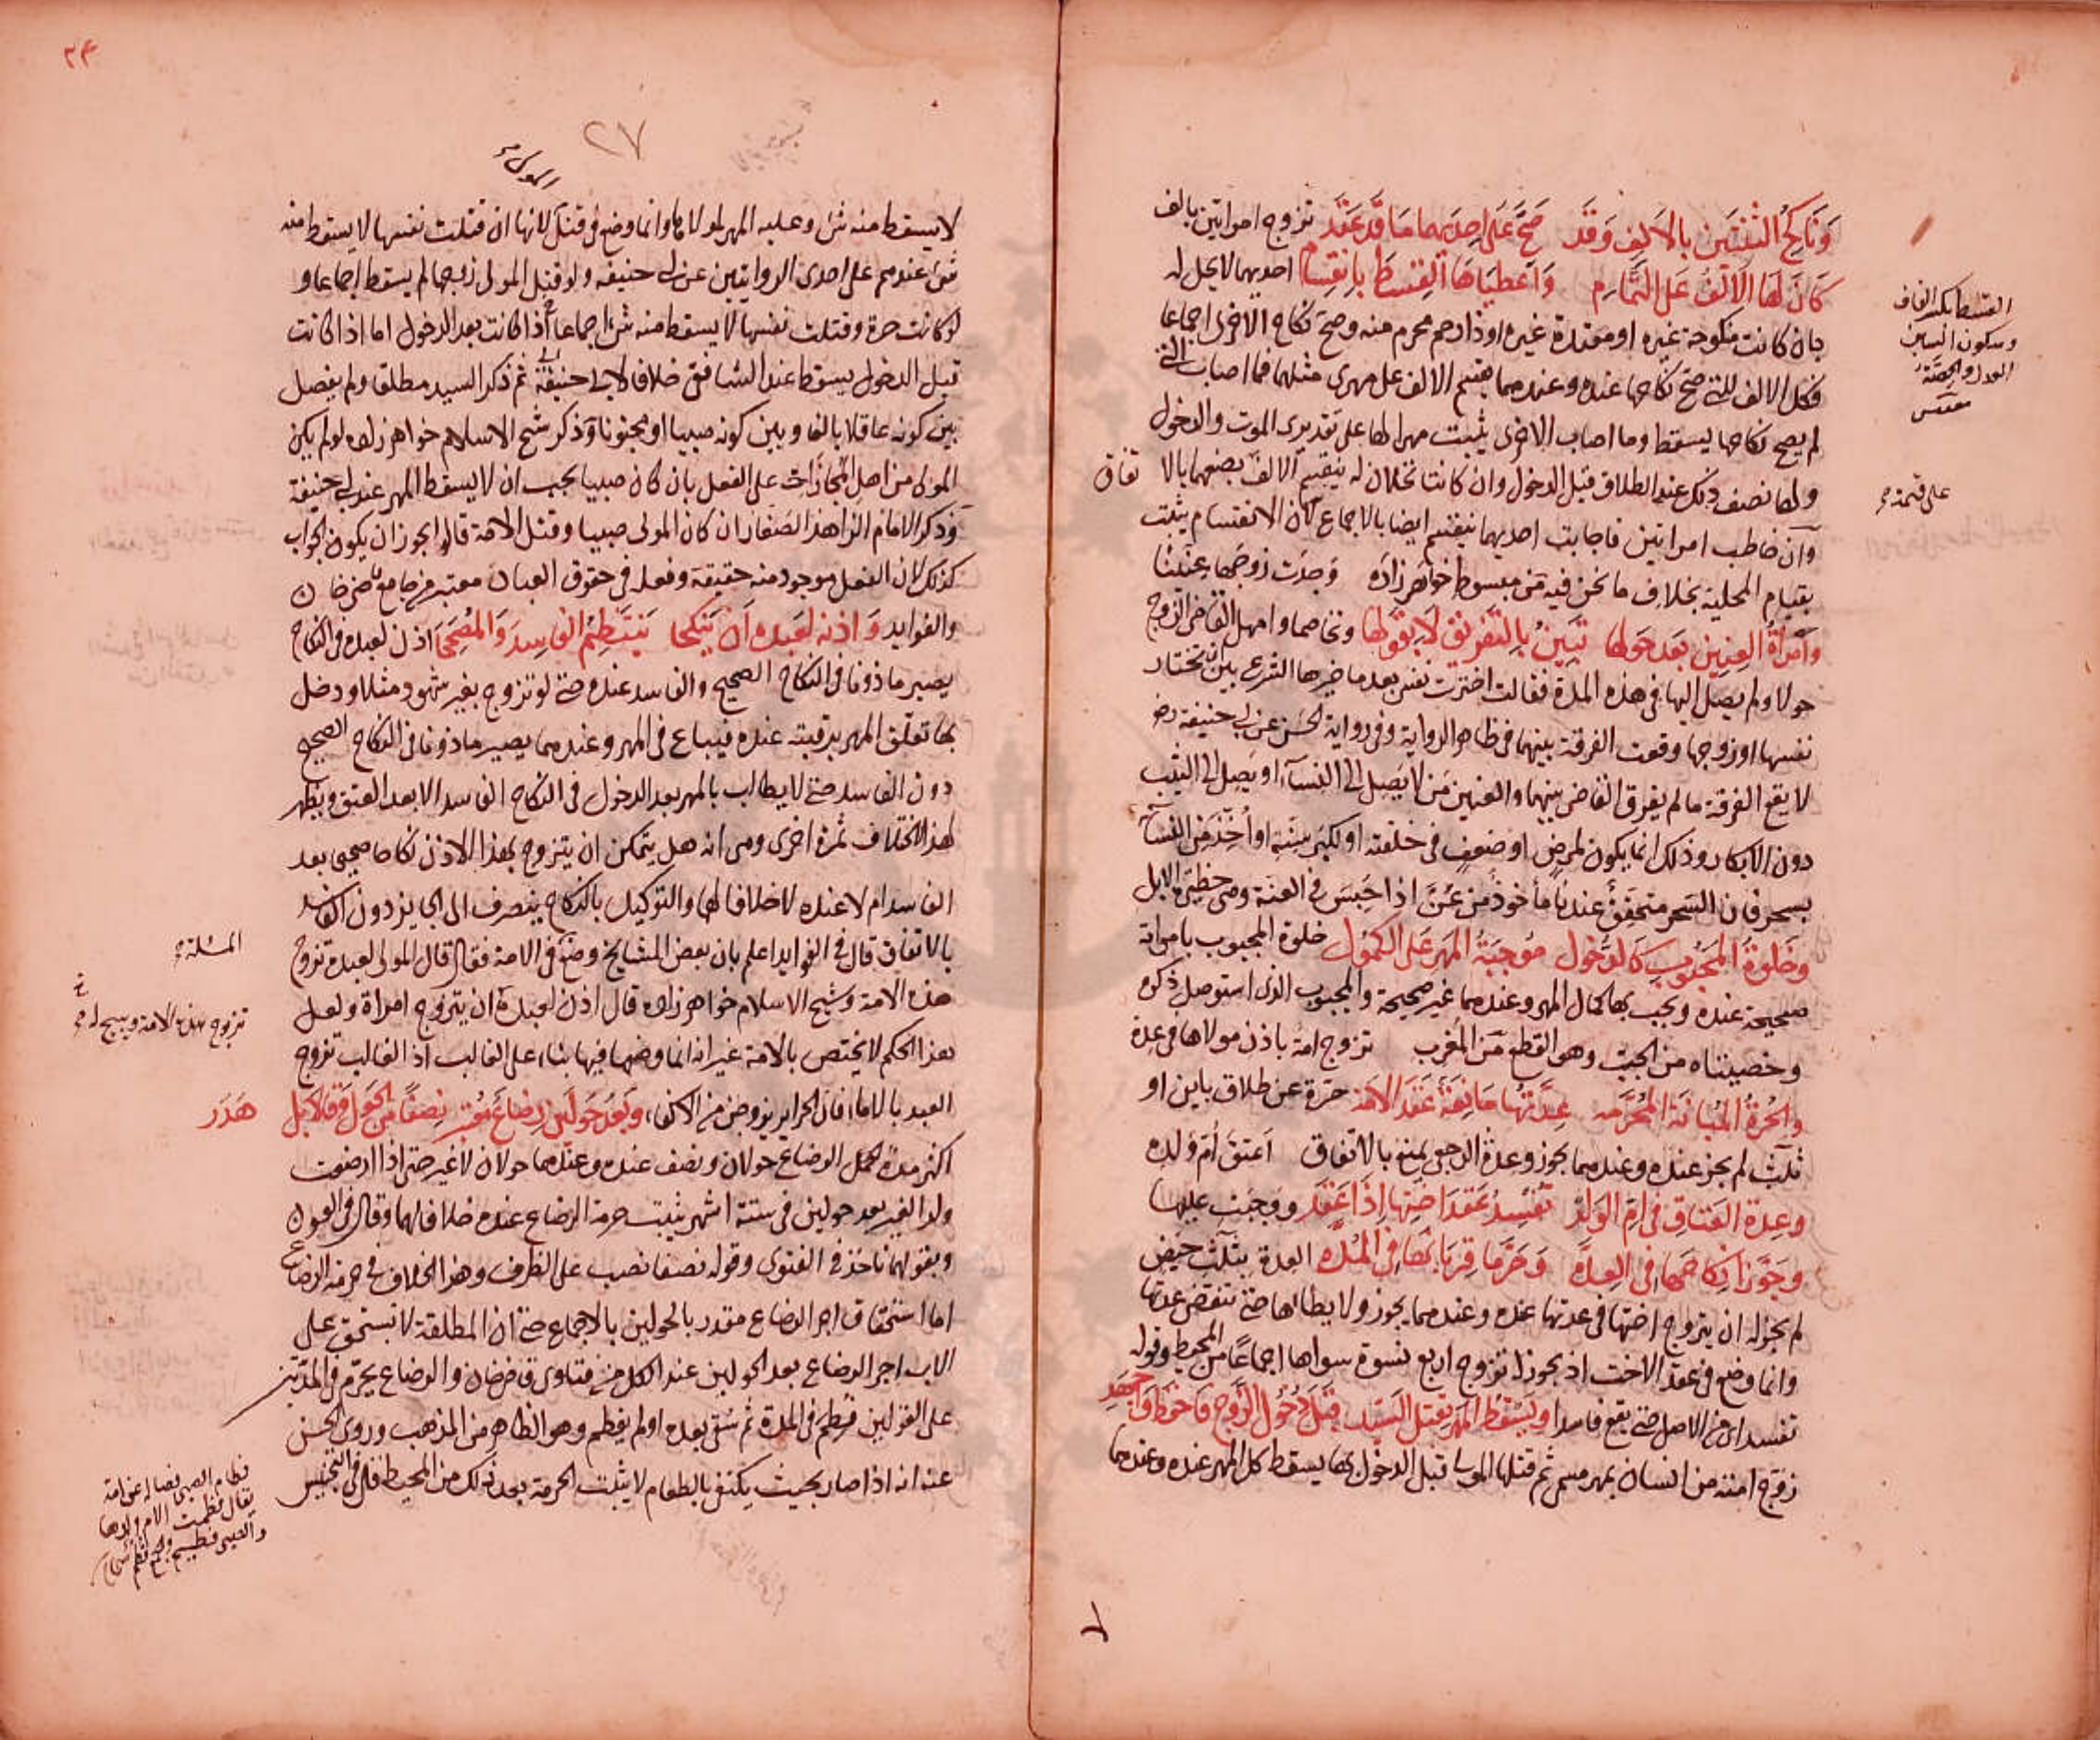 وَنَاكِحُ الثِّنْتَيْنِ بالاَلْفِ وَقَد صَحَّ عَلَى اِحدَيهما مَا قَد عَقَد تزوج امراتين بالف
كَانَ لَهَا الاَلْفُ عَلَى التَّمَامِ وَاَعطَيَاهَا القِسْطَ بِانقِسَام احديهما لا يحل له
بان كانت منكوحة غيره او معتدة غيره او ذا رحم محرم منه وصح نكاح الاخرى اجماعا
فكل الالف للتي صح نكاحها عنده وعندهما يقسم الالف على مهرى مثلهما فما اصاب التي
لم يصح نكاحها يسقط وما اصاب الاخرى يثبت مهرا لها على تقديرى الموت والدخول
ولها نصف ذلك عند الطلاق قبل الدخول وان كانتا تحلان له ينقسم الالف بضعهما بالاتفاق
وان خاطب امراتين فاجابت احديهما ينقسم ايضا بالاجماع لان الانقسام يثبت
بقيام المحلية بخلاف ما نحن فيه من مبسوط خواهر زاده وَجَدَت زوجَها عِنِّينًا
وَامرَأةُ العِنِينِ بَعد حَولها تَبِينُ بِالتَفرِيق لَا بِقَولها وتخاصما وامهل القاضى الزوج
حولا ولم يصل اليها فى هذه المدة فقالت اخترت نفسى بعد ما خيرها الشرع بين ان تختار
نفسها او زوجها وقعت الفرقة بينهما فى ظاهر الرواية وفى رواية الحسن عن ابى حنيفة رضـ
لا يقع الفرقة ما لم يفرق القاضى بينهما والعنين مَن لا يَصِل الى النسآء او يَصِل الى الثيب
دون الابكار وذلك انما يكون لمرضٍ او ضعفٍ فى خلقته او لكِبَرِ سِنّهِ او اُخِّذ عن النسآء
بسحر فان السحر متحقِقٌ عندنا مأخوذ من عُنَّ اذا حُبِسَ فى العنة وهى حظيرة الابل
وخَلوَةُ المَجبُوبِ كَالدُخول مُوجِبَةُ المَهرِ عَلى الكمُول خلوة المجبوب بامراته
صحيحة عنده ويجب بها كمال المهر وعندهما غير صحيحة والمجبوب الذى استوصل ذكره
وخصيتاه من الجب وهو القطع مَن المُغرب تزوج امة باذن مولاها فى عدة
والحُرةُ المُبانَة المُحَرَّمه عِدَّتُهَا مَانِعَة عَقدَ الاَمَه حرّة عن طلاق باين او
ثلث لم يجز عنده وعندهما يجوز وعدة الرجعى يمنع بالاتفاق اَعتقَ اُم ولده
وعِدة العَتَاقِ فى اُمِّ الوَلَدْ تُفْسِدُ عَقدَ اُختِهَا اِذَا عَقَد ووَجَبَت عليها
وجَوَّزَا نِكَاحَهَا فِى العِدَّه وَحَرَّمَا قِربَانَهَا فِى المُدَّه العدة بثلث حِيَض
لم يجز له ان يتزوج اختها فى عدتها عنده وعندهما يجوز ولا يطاها حتى تنقضى عدتها
وانما وضع فى عقد الاخت اذ يجوز له تزوج اربع نسوة سواها اجماعًا من المحيط وقوله
تفسد اى فى الاصل حتى يقع فاسدا ويَسْقُطُ المَهرُ بِقتل السَيِّد قَبْلَ دُخُولِ الزَّوج فَاحفظ وَاجهَدِ
زوّج امته من انسان بمهر مسمى ثم قتلها المولى قبل الدخول بها يسقط كل المهر عنده وعندهما
القسط بكسر القاف
وسكون السين
العدل والحِصَّة
على قسمة
٢٤
٢٧
لا يسقط منه شى وعليه المهر لمولاها وانما وضع فى قتل لانها ان قتلت نفسها لا يسقط منه
شى عندهم على احدى الروايتين عن ابى حنيفه ولو قتل المولى زوجها لم يسقط اجماعا و
لو كانت حرة وقتلت نفسها لا يسقط منه شى اجماعا اذا كانت بعد الدخول اما اذا كانت
قبل الدخول يسقط عند الشافعى خلافا لابى حنيفة ثم ذكر السيد مطلقا ولم يفصل
بين كونه عاقلا بالغا وبين كونه صبيا او مجنونا وذكر شيخ الاسلام خواهر زاده لو لم يكن
المولى من اهل المجازات على الفعل بان كان صبيا يجب ان لا يسقط المهر عند ابى حنيفة
وذكر الامام الزاهد الصفار ان كان المولى صبيا وقتل الامة قالوا يجوز ان يكون الجواب
كذلك لان الفعل موجود منه حقيقة وفعله فى حقوق العباد معتبر من جامع قاضى خان
والفوايد وَاِذنُه لعَبدِه اَن يَنكِحا يَنتَظِمُ الفَاسِدَ وَالمُصَحَّحَا اذن لعبده فى النكاح
يصير ماذونا فى النكاح الصحيح والفاسد عنده حتى لو تزوج بغير شهود مثلا ودخل
بها تعلّق المهر برقبته عنده فيباع فى المهر وعندهما يصير ماذونا فى النكاح الصحيح
دون الفاسد حتى لا يطالب بالمهر بعد الدخول فى النكاح الفاسد الا بعد العتق ويظهر
لهذا الاختلاف ثمرة اخرى وهى انه هل يتمكن ان يتزوج بهذا الاذن نكاحا صحيحا بعد
الفاسد ام لا عنده لا خلافا لهما والتوكيل بالنكاح ينصرف الى الجايز دون الفاسد
بالاتفاق قال فى الفوايد اعلم بان بعض المشايخ وضع فى الامة فقال قال المولى لعبده تزوج
هذه الامة وشيخ الاسلام خواهر زاده قال اذن لعبده ان يتزوج امراة ولعل
هذا الحكم لا يختص بالامة غير انه انما وضعها فيها بناء على الغالب اذ الغالب تزوج
العبد بالاماء فان الحراير يزوجن من الاكفاء وبَعدَ حَولَينِ رِضَاعٌ مُعتَبَر نِصفًا مِن الحَول وقالا بَل هَدَر
اكثر مدة لحكم الرضاع حولان ونصف عنده وعندهما حولان لا غير حتى اذا ارضعت
ولد الغير بعد حولين فى ستة اشهر يثبت حرمة الرضاع عنده خلافا لهما وقال فى العيون
وبقولهما ناخذ فى الفتوى وقوله نصفا نصب على الظرف وهذا الخلاف فى حرمة الرضاع
اما استحقاق اجر الرضاع مقدر بالحولين بالاجماع حتى ان المطلقة لا تستحق على
الاب اجر الرضاع بعد الحولين عند الكل من فتاوى قاضى خان والرضاع يحرّم فى المدّتين
على القولين فُطِمَ فى المدة ثم سُقى بعده او لم يفطم وهو الظاهر من المذهب وروى الحسن
عنه انه اذا صار بحيث يكتفى بالطعام لا يثبت الحرمة بعد ذلك من المحيط قال فى التجنيس
المسئلة
تزوج هذه الامة
فطام الصبى فصاله عن امه
يقال فطمت الام ولدها